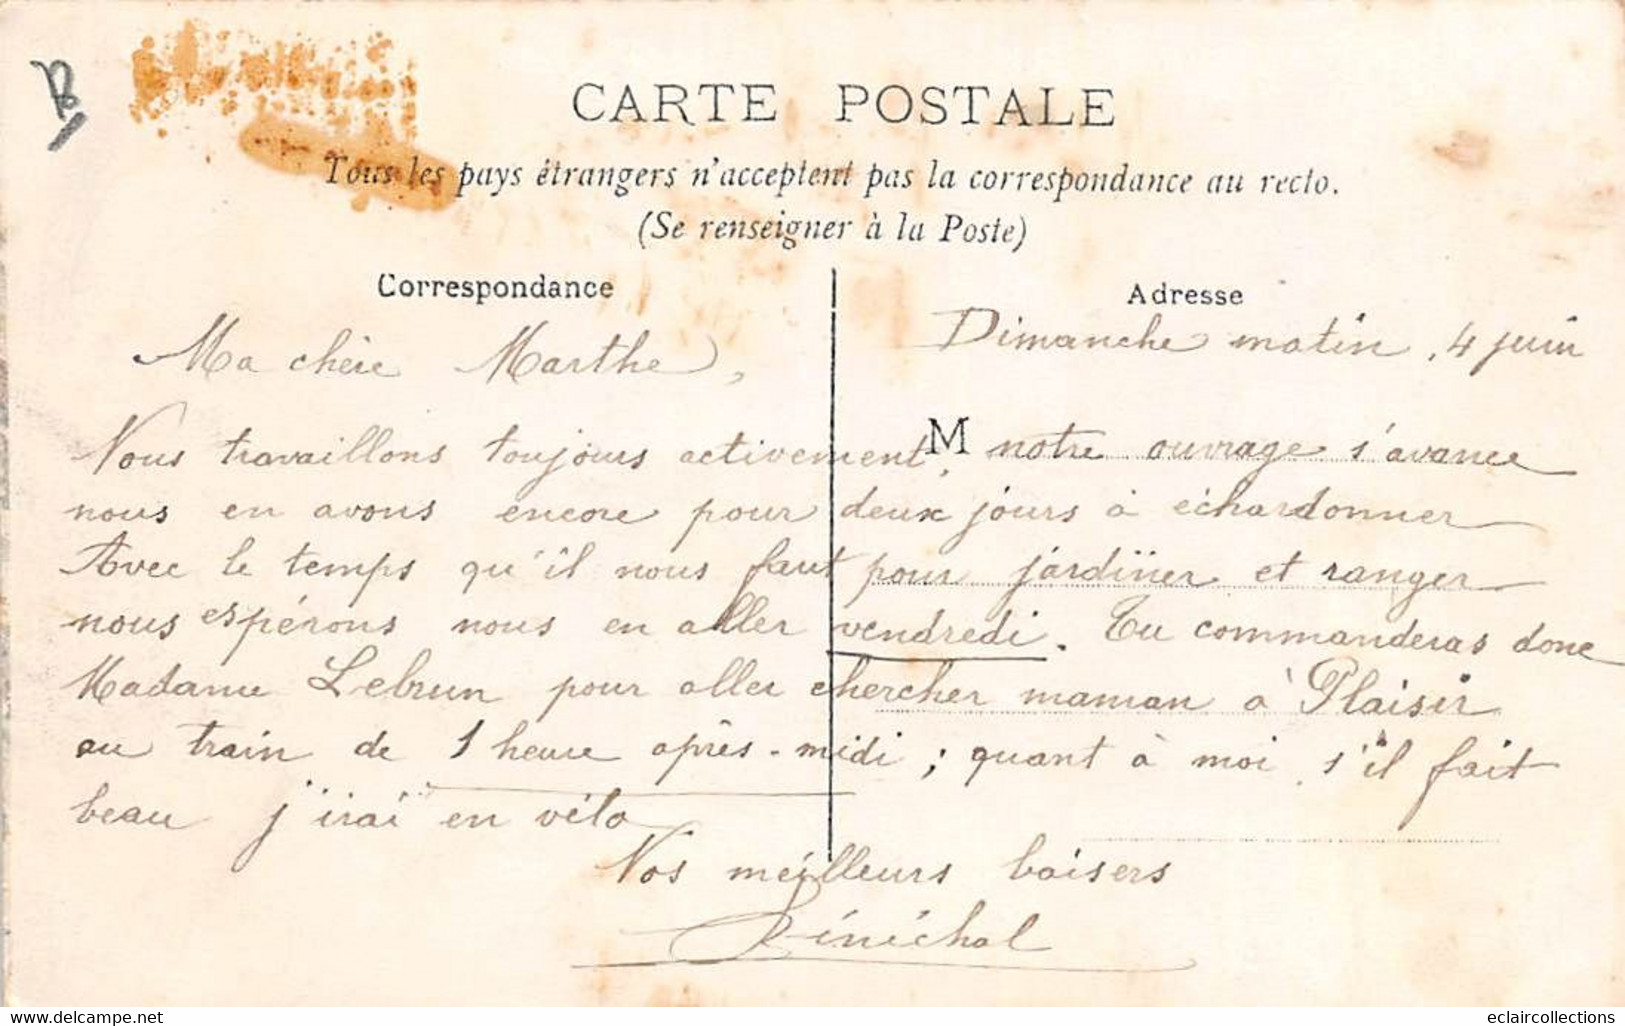 B
CARTE POSTALE
Tous les pays étrangers n'acceptent pas la correspondance au recto.
(Se renseigner à la Poste)
Correspondance
Adresse
Dimanche matin, 4 juin
Ma chère Marthe,
Nous travaillons toujours activement, M notre ouvrage s'avance
nous en avons encore pour deux jours à échardonner
Avec le temps qu'il nous faut pour jardiner et ranger
nous espérons nous en aller vendredi. Tu commanderas donc
Madame Lebrun pour aller chercher maman à Plaisir
au train de 1 heure après-midi ; quant à moi s'il fait
beau j'irai en vélo
Nos meilleurs baisers
Sénéchal
www.delcampe.net
eclaircollections